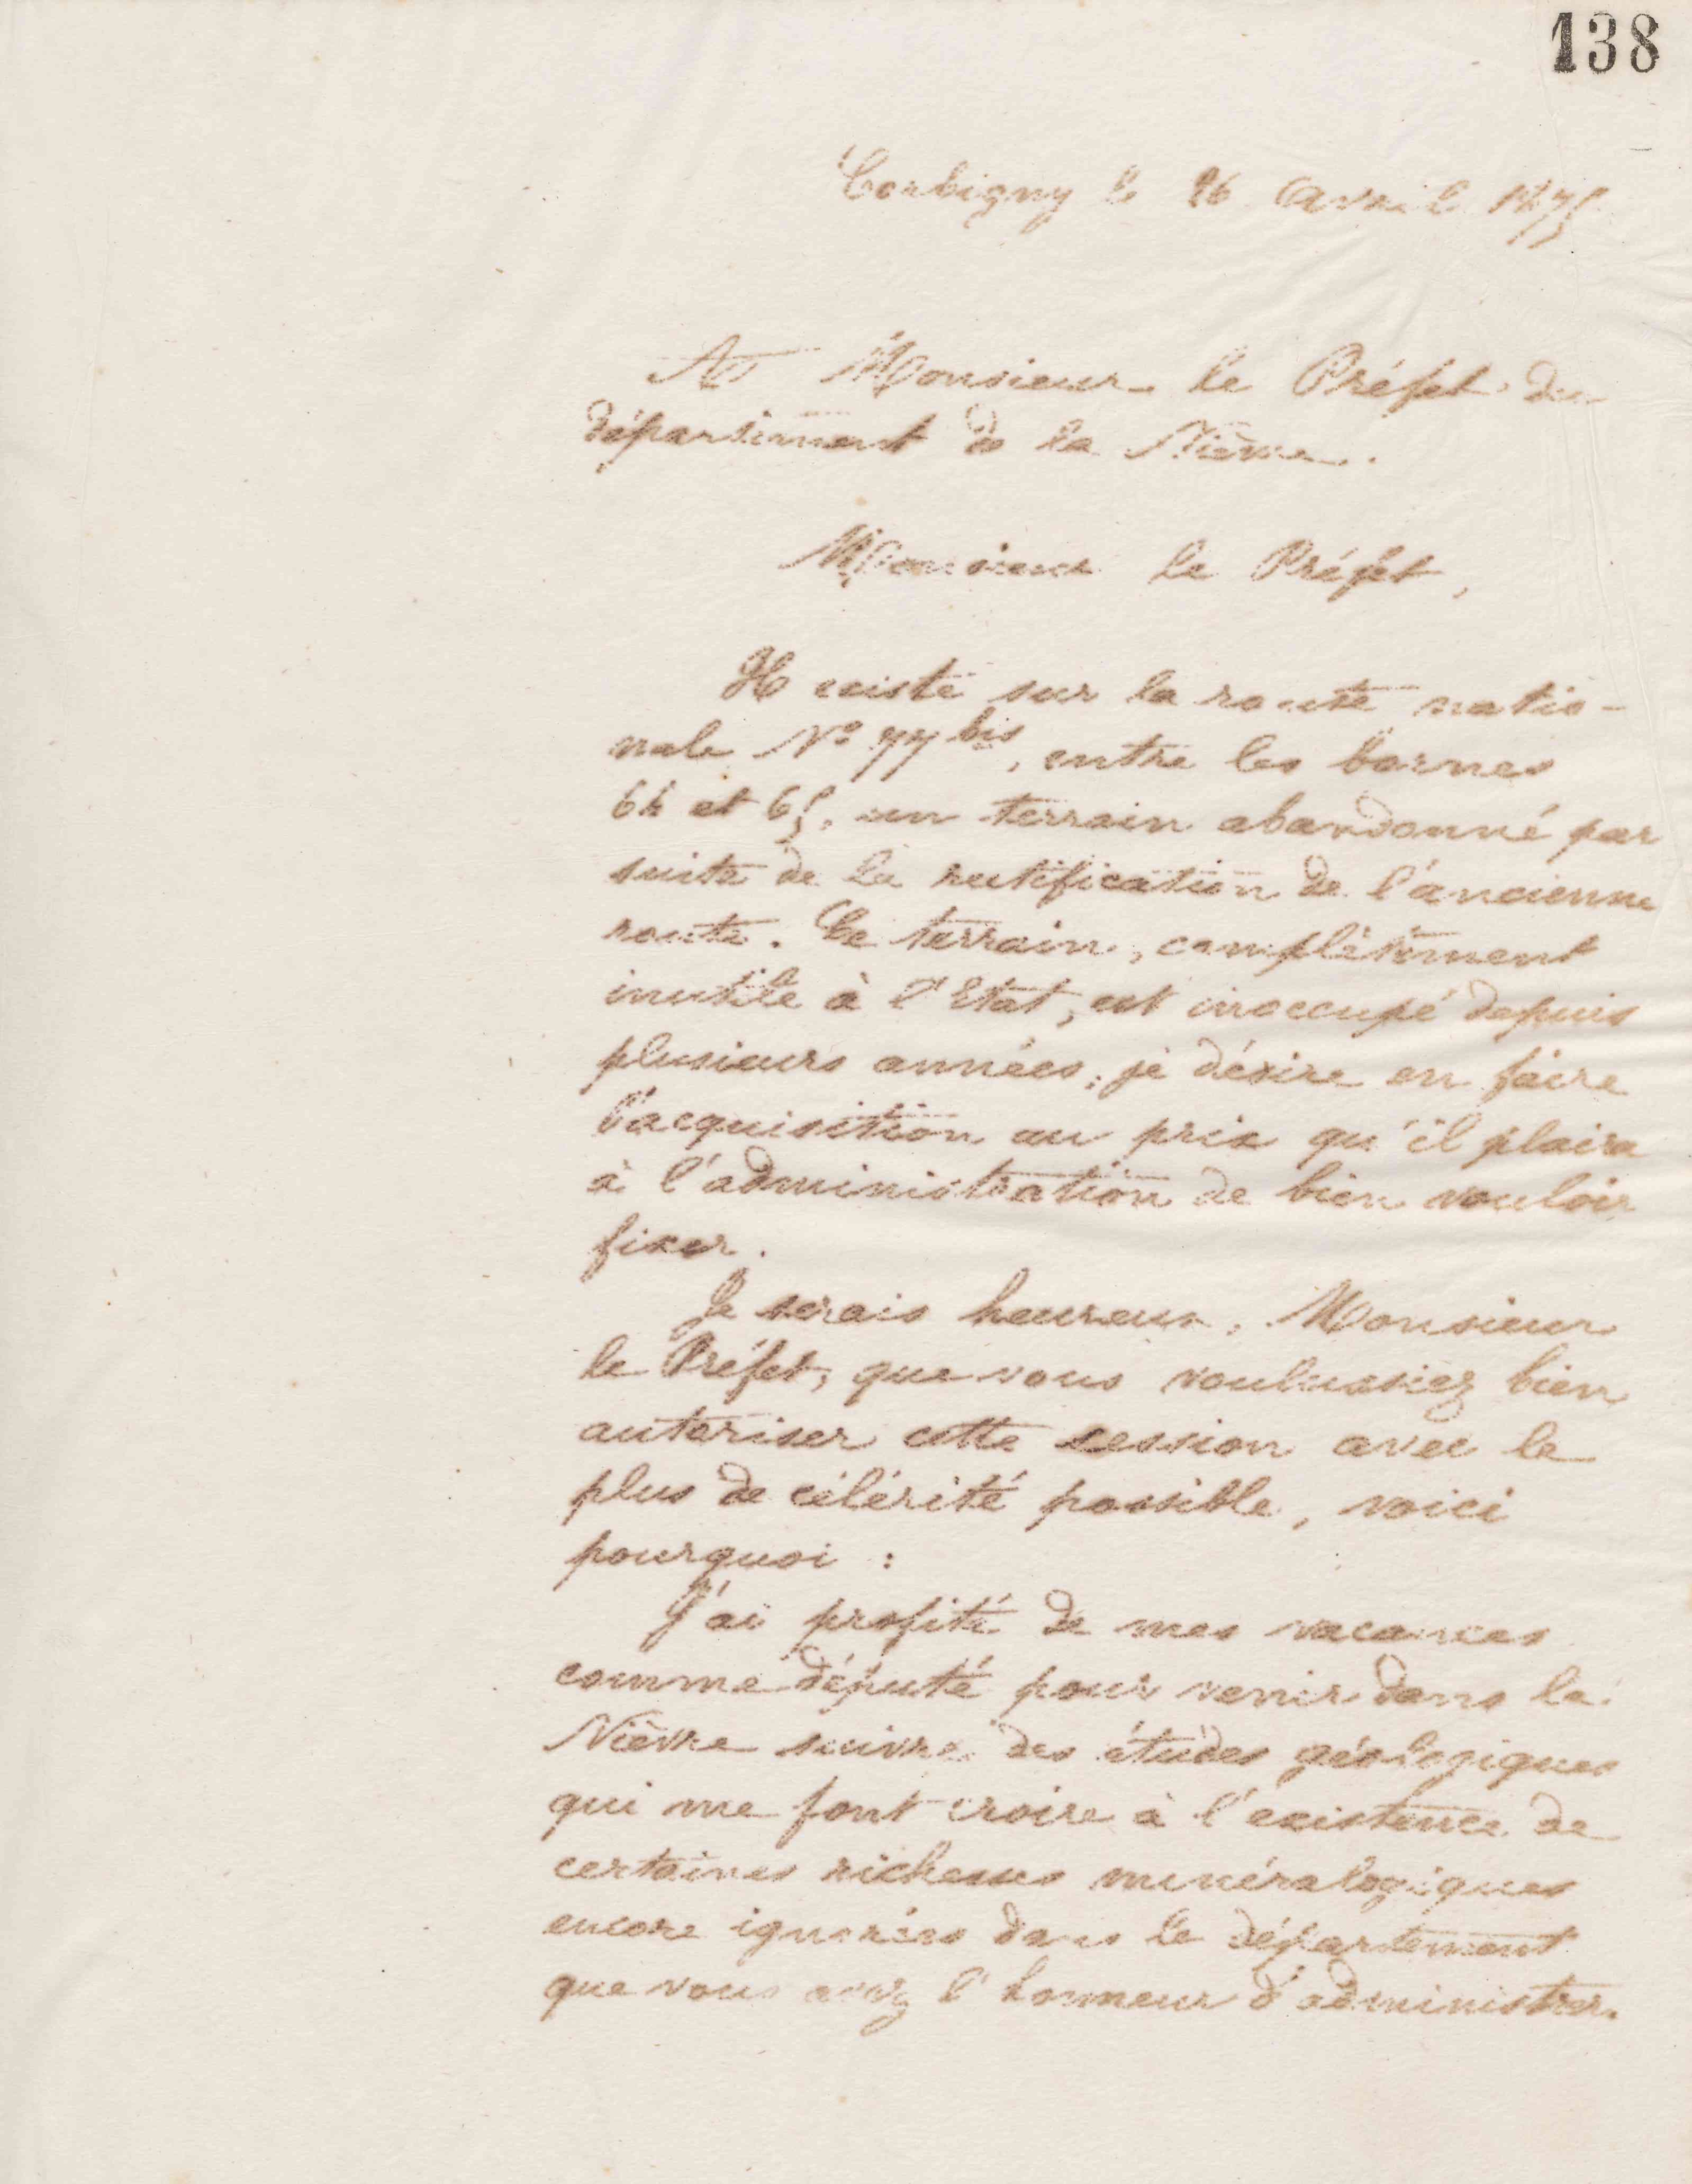 138
Corbigny le 26 Avril 1875
A Monsieur le Préfet du
département de la Nièvre.
Monsieur le Préfet,
Il existe sur la route natio-
nale N° 77 bis, entre les bornes
64 et 65, un terrain abandonné par
suite de la rectification de l'ancienne
route. Ce terrain, complètement
inutile à l'Etat, est inoccupé depuis
plusieurs années; je désire en faire
l'acquisition au prix qu'il plaira
à l'administration de bien vouloir
fixer.
Je serais heureux, Monsieur
le Préfet, que vous voulussiez bien
autoriser cette cession avec le
plus de célérité possible, voici
pourquoi :
J'ai profité de mes vacances
comme député pour venir dans la
Nièvre suivre des études géologiques
qui me font croire à l'existence de
certaines richesses minéralogiques
encore ignorées dans le département
que vous avez l'honneur d'administrer.